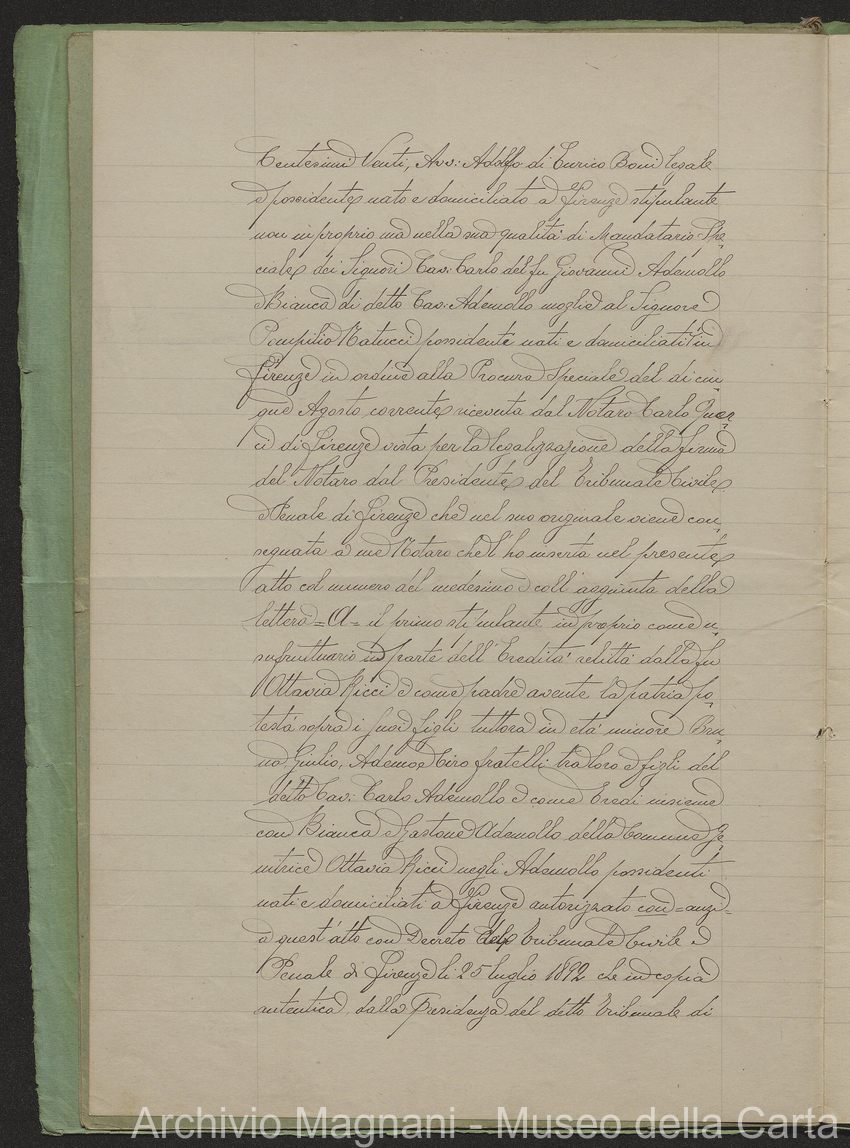 Centesimi Venti, Avv: Adolfo di Enrico Boni legale
e possidente nato e domiciliato a Firenze stipulante
non in proprio ma nella sua qualità di Mandatario Spe-
ciale dei Signori Cav: Carlo del fu Giovanni Ademollo
e Bianca di detto Cav: Ademollo moglie al Signore
Pompilio Matucci possidente nati e domiciliati in
Firenze in ordine alla Procura Speciale del dì cin-
que Agosto corrente ricevuta dal Notaro Carlo Quer-
ci di Firenze vista per la legalizzazione della firma
del Notaro dal Presidente del Tribunale Civile
e Penale di Firenze che nel suo originale viene con-
segnata a me Notaro che l'ho inserta nel presente
atto col numero del medesimo e coll'aggiunta della
lettera = A = il primo stipulante in proprio come u-
sufruttuario in parte dell'Eredità relitta dalla fu
Ottavia Ricci e come padre avente la patria po-
testà sopra i suoi figli tuttora in età minore Bru-
no, Giulio, Ademo e Ciro fratelli tra loro e figli del
detto Cav: Carlo Ademollo e come Eredi insieme
con Bianca e Gastone Ademollo della Comune Ge-
nitrice Ottavia Ricci negli Ademollo possidenti
nati e domiciliati a Firenze autorizzato con = anzi =
a quest'atto con Decreto del Tribunale Civile e
Penale di Firenze li 25 luglio 1892 che in copia
autentica dalla Presidenza del detto Tribunale di
Archivio Magnani - Museo della Carta